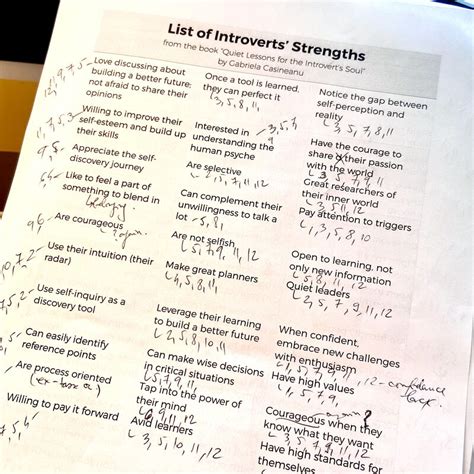 List of Introverts' Strengths
from the book "Quiet Lessons for the Introvert's Soul"
by Gabriela Casineanu
Love discussing about
building a better future;
not afraid to share their
opinions
12, 11, 9, 7, 5
Willing to improve their
self-esteem and build up
their skills
11, 7, 5, 3
Appreciate the self-
discovery journey
9, 5
Like to feel a part of
something to blend in
Are courageous
9, 6
again
Use their intuition (their
radar)
10, 7, 2
Use self-inquiry as a
discovery tool
7, 5, 2
Can easily identify
reference points
5
Are process oriented
Willing to pay it forward
Once a tool is learned,
they can perfect it
3, 5, 8, 11
Interested in
understanding the
human psyche
3, 5, 7,
9
Are selective
Can complement their
unwillingness to talk a
lot
5, 8
Are not selfish
5, 7, 9, 11, 12
Make great planners
4, 5, 8, 11
Leverage their learning
to build a better future
2, 5, 8, 10, 11
Can make wise decisions
in critical situations
5, 7, 9, 11
Tap into the power of
their mind
6, 9, 11, 12
Avid learners
3, 5, 10, 11, 12
Notice the gap between
self-perception and
reality
3, 5, 7, 8, 11
Have the courage to
share their passion
with the world
3, 5, 7, 9, 11
Great researchers of
their inner world
3, 5, 11, 12
Pay attention to triggers
1, 3, 5, 8, 10
Open to learning, not
only new information
5, 8, 11, 12
Quiet leaders
2, 5, 7, 9, 11, 12
When confident,
embrace new challenges
with enthusiasm
1, 5, 7, 9, 11, 12 - confidence
Have high values
1, 5, 7, 9,
again?
Courageous when they
know what they want
3, 5, 7, 9, 11, 12
Have high standards for
themselves